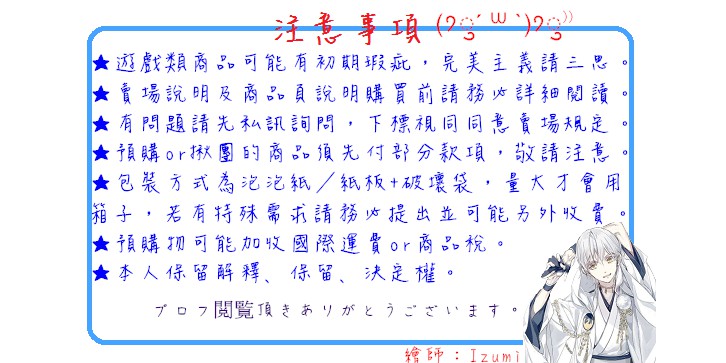 注意事項(੭ु´･ω･`)੭ु⁾⁾
★遊戲類商品可能有初期瑕疵，完美主義請三思。
★賣場說明及商品頁說明購買前請務必詳細閱讀。
★有問題請先私訊詢問，下標視同同意賣場規定。
★預購or揪團的商品須先付部分款項，敬請注意。
★包裝方式為泡泡紙／紙板+破壞袋，量大才會用
箱子，若有特殊需求請務必提出並可能另外收費。
★預購物可能加收國際運費or商品稅。
★本人保留解釋、保留、決定權。
プロフ閲覧頂きありがとうございます。
繪師：Izumi